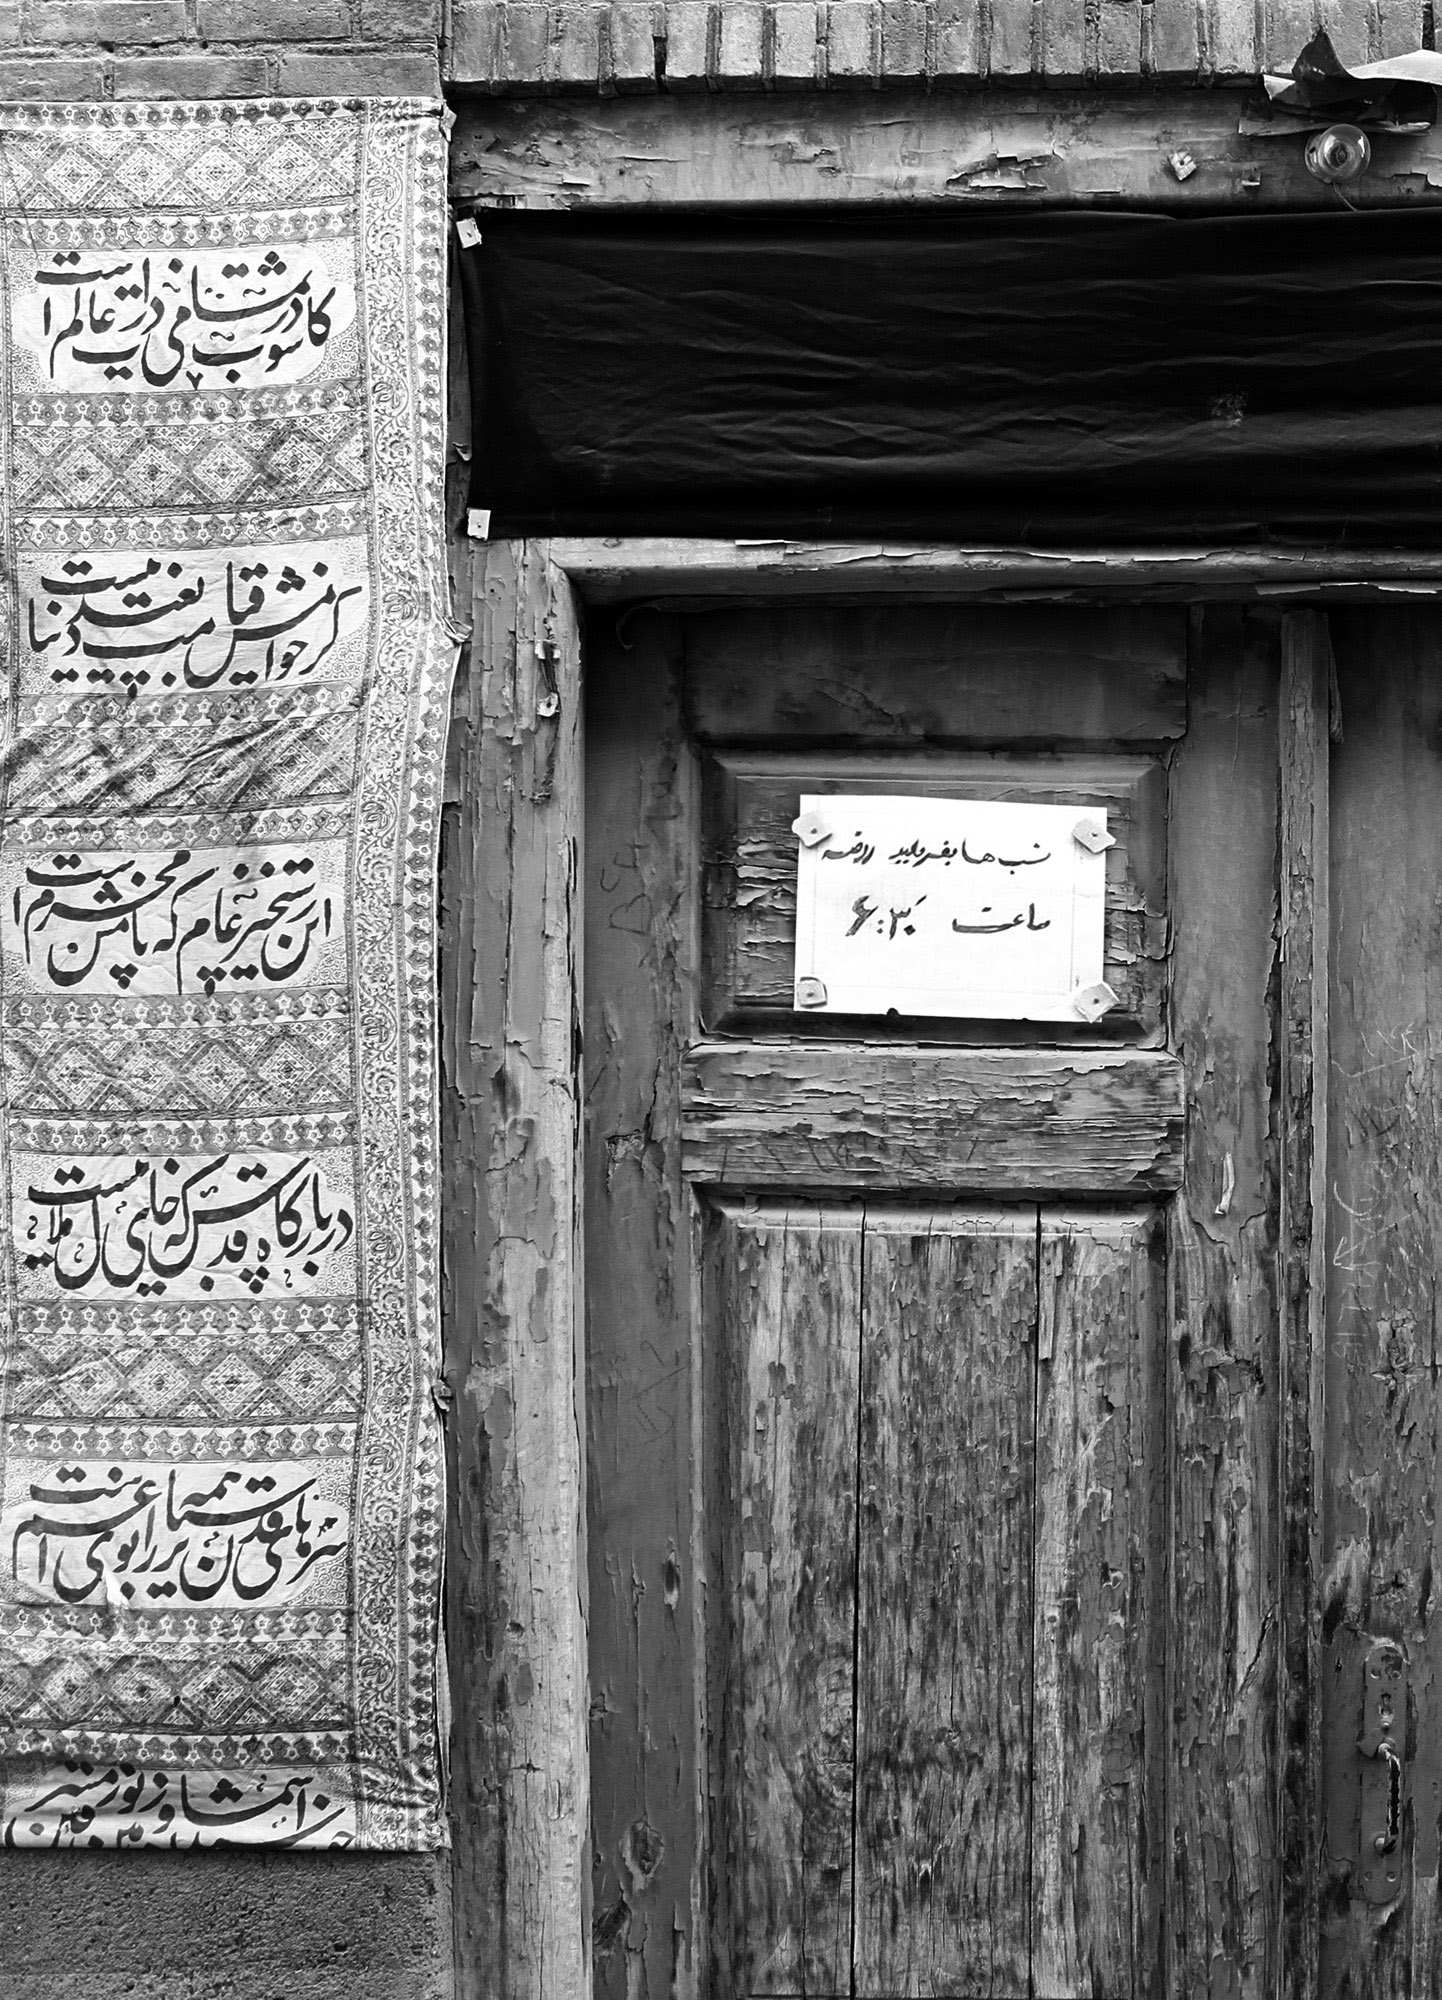 کاشوب در تمامی ذرات عالم است
گر خوانمش قیامت دنیا بعید نیست
این رستخیز عام که نامش محرم است
در بارگاه قدس که جای ملال نیست
سرهای قدسیان همه بر زانوی غم است
خورشید آسمان و زمین نور مشرقین
شب ها بفرمایید روضه
ساعت ۶:۳۰